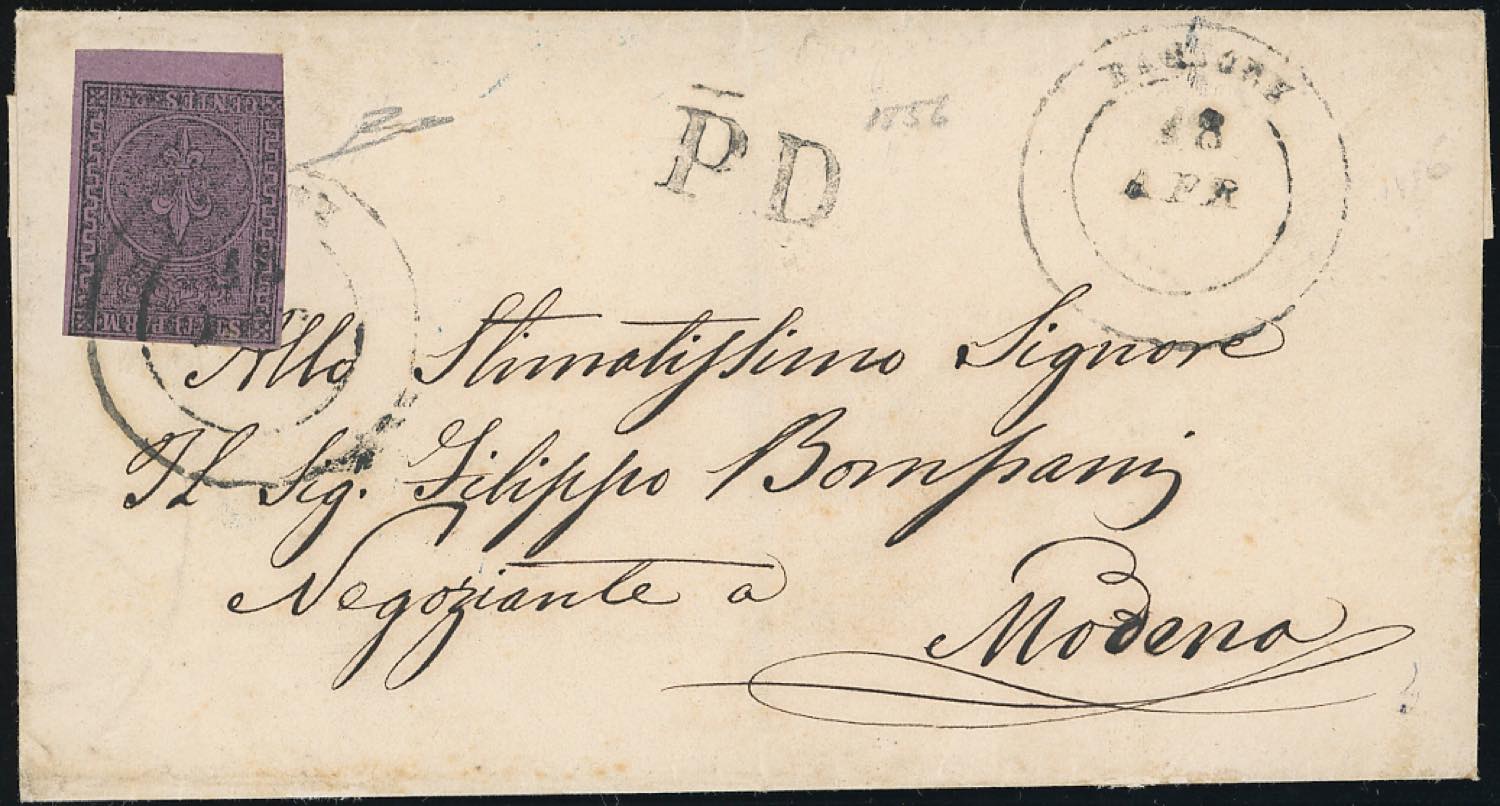 CENTES. 25
STATI PARM.
P.D
1856
BARDONE
18
APR
Allo Stimatissimo Signore
Il Sig. Filippo Bompani
Negoziante a
Modena